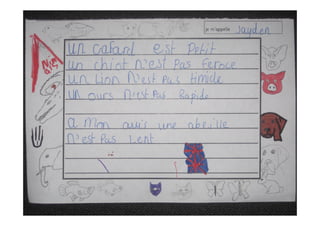 je m'appelle Jayden
un cafard est Petit
un chiot n'est Pas Feroce
un Lion n'est Pas timide
un ours n'est Pas Rapide
a mon avis une abeille
n'est Pas Lent